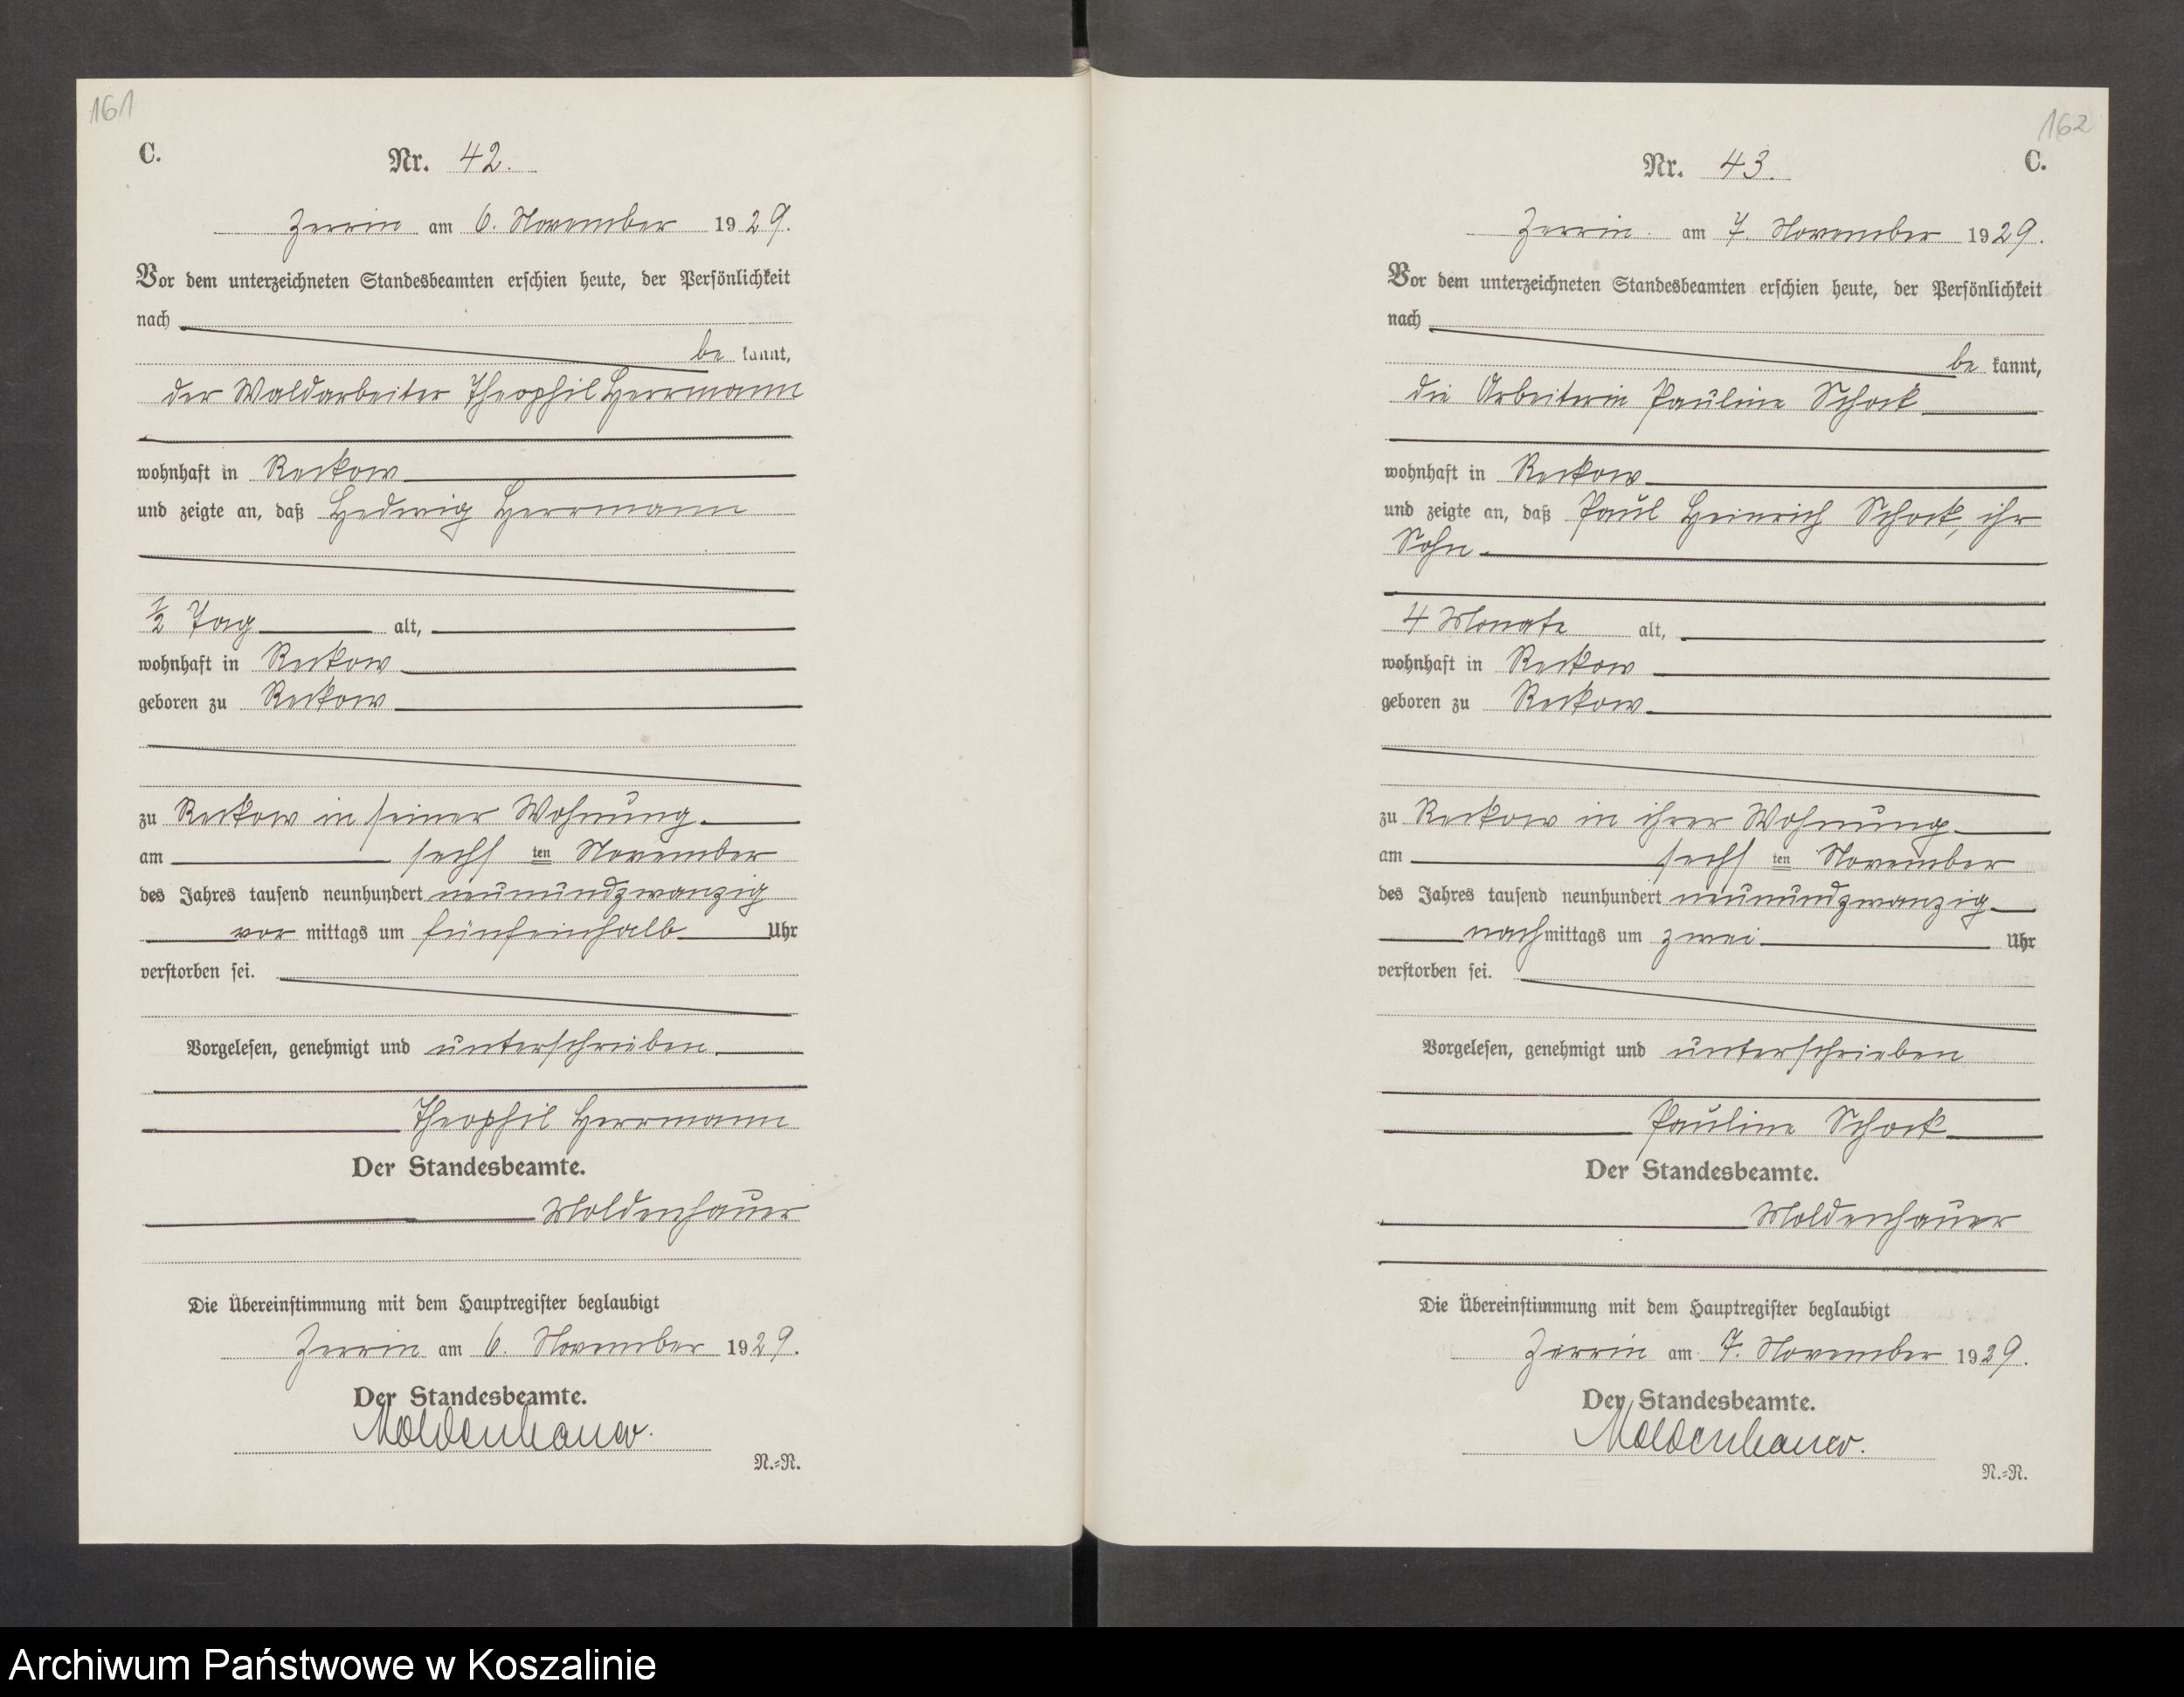 161
C.
Nr. 42.
Zerrin am 6. November 1929.
Vor dem unterzeichneten Standesbeamten erschien heute, der Persönlichkeit
nach
be kannt,
der Waldarbeiter Theophil Herrmann
wohnhaft in Reckow
und zeigte an, daß Hedwig Herrmann
½ Tag alt,
wohnhaft in Reckow
geboren zu Reckow
zu Reckow in seiner Wohnung
am sechs ten November
des Jahres tausend neunhundert neunundzwanzig
vor mittags um fünfeinhalb Uhr
verstorben sei.
Vorgelesen, genehmigt und unterschrieben.
Theophil Herrmann
Der Standesbeamte.
Moldenhauer
Die Übereinstimmung mit dem Hauptregister beglaubigt
Zerrin am 6. November 1929.
Der Standesbeamte.
Moldenhauer.
N.=N.
162
Nr. 43.
C.
Zerrin. am 7. November 1929.
Vor dem unterzeichneten Standesbeamten erschien heute, der Persönlichkeit
nach
be kannt,
die Arbeiterin Pauline Schock
wohnhaft in Reckow
und zeigte an, daß Paul Heinrich Schock, ihr
Sohn
4 Monate alt,
wohnhaft in Reckow
geboren zu Reckow
zu Reckow in ihrer Wohnung
am sechs ten November
des Jahres tausend neunhundert neunundzwanzig
nach mittags um zwei Uhr
verstorben sei.
Vorgelesen, genehmigt und unterschrieben
Pauline Schock
Der Standesbeamte.
Moldenhauer
Die Übereinstimmung mit dem Hauptregister beglaubigt
Zerrin am 7. November 1929.
Der Standesbeamte.
Moldenhauer.
N.=N.
Archiwum Państwowe w Koszalinie